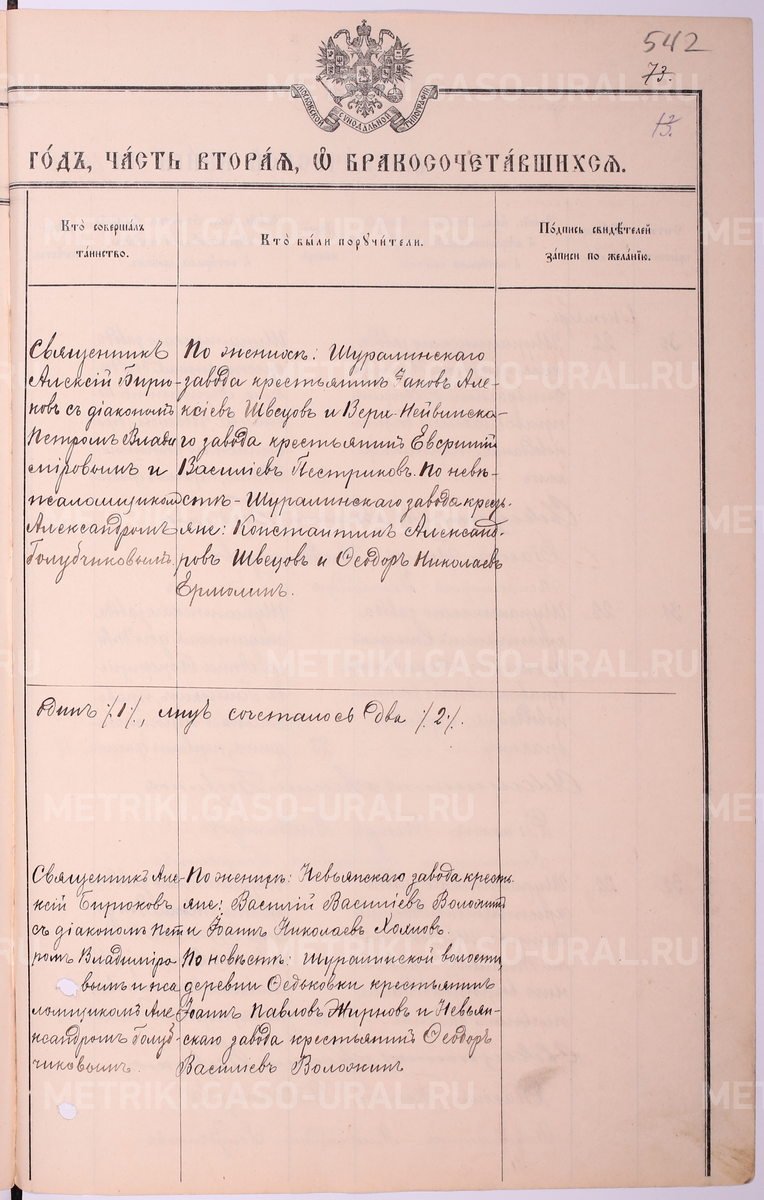 542
73.
МОСКОВСКОЙ СѴНОДАЛЬНОЙ ТИПОГРАФІИ
ГО́ДЪ, ЧА́СТЬ ВТОРА́Я, Ѡ БРАКОСОЧЕТА́ВШИХСЯ.
Кто̀ соверша́лъ
та́инство.
Кто̀ бы́ли поручи́тели.
По́дпись свидѣ́телей
за́писи по жела́нію.
Священникъ
Алексій Бирю-
ковъ съ діакономъ
Петромъ Влади
міровымъ и
псаломщикомъ
Александромъ
Голубчиковымъ.
По женихѣ: Шуралинскаго
завода крестьянинъ Іаковъ Але-
ксіевъ Швецовъ и Верх-Нейвинска-
го завода крестьянинъ Евсигній
Василіевъ Пестриковъ. По невѣ-
стѣ - Шуралинскаго завода кресть-
яне: Константинъ Александ-
ровъ Швецовъ и Ѳеодоръ Николаевъ
Ермолинъ.
Одинъ /.1/., лицъ сочеталось два /.2/.
Священникъ Але-
ксій Бирюковъ
съ діакономъ Пет
ромъ Владиміро
вымъ и пса
ломщикомъ Але-
ксандромъ Голуб
чиковымъ.
По женихѣ: Невьянскаго завода кресть-
яне: Василій Василіевъ Воложинъ
и Іоаннъ Николаевъ
По невѣстѣ: Шуралинской волости,
деревни Ѳедьковки крестьянинъ
Іоаннъ Павловъ Жирновъ и Невьян-
скаго завода крестьянинъ Ѳеодоръ
Василіевъ Воложинъ
METRIKI.GASO-URAL.RU